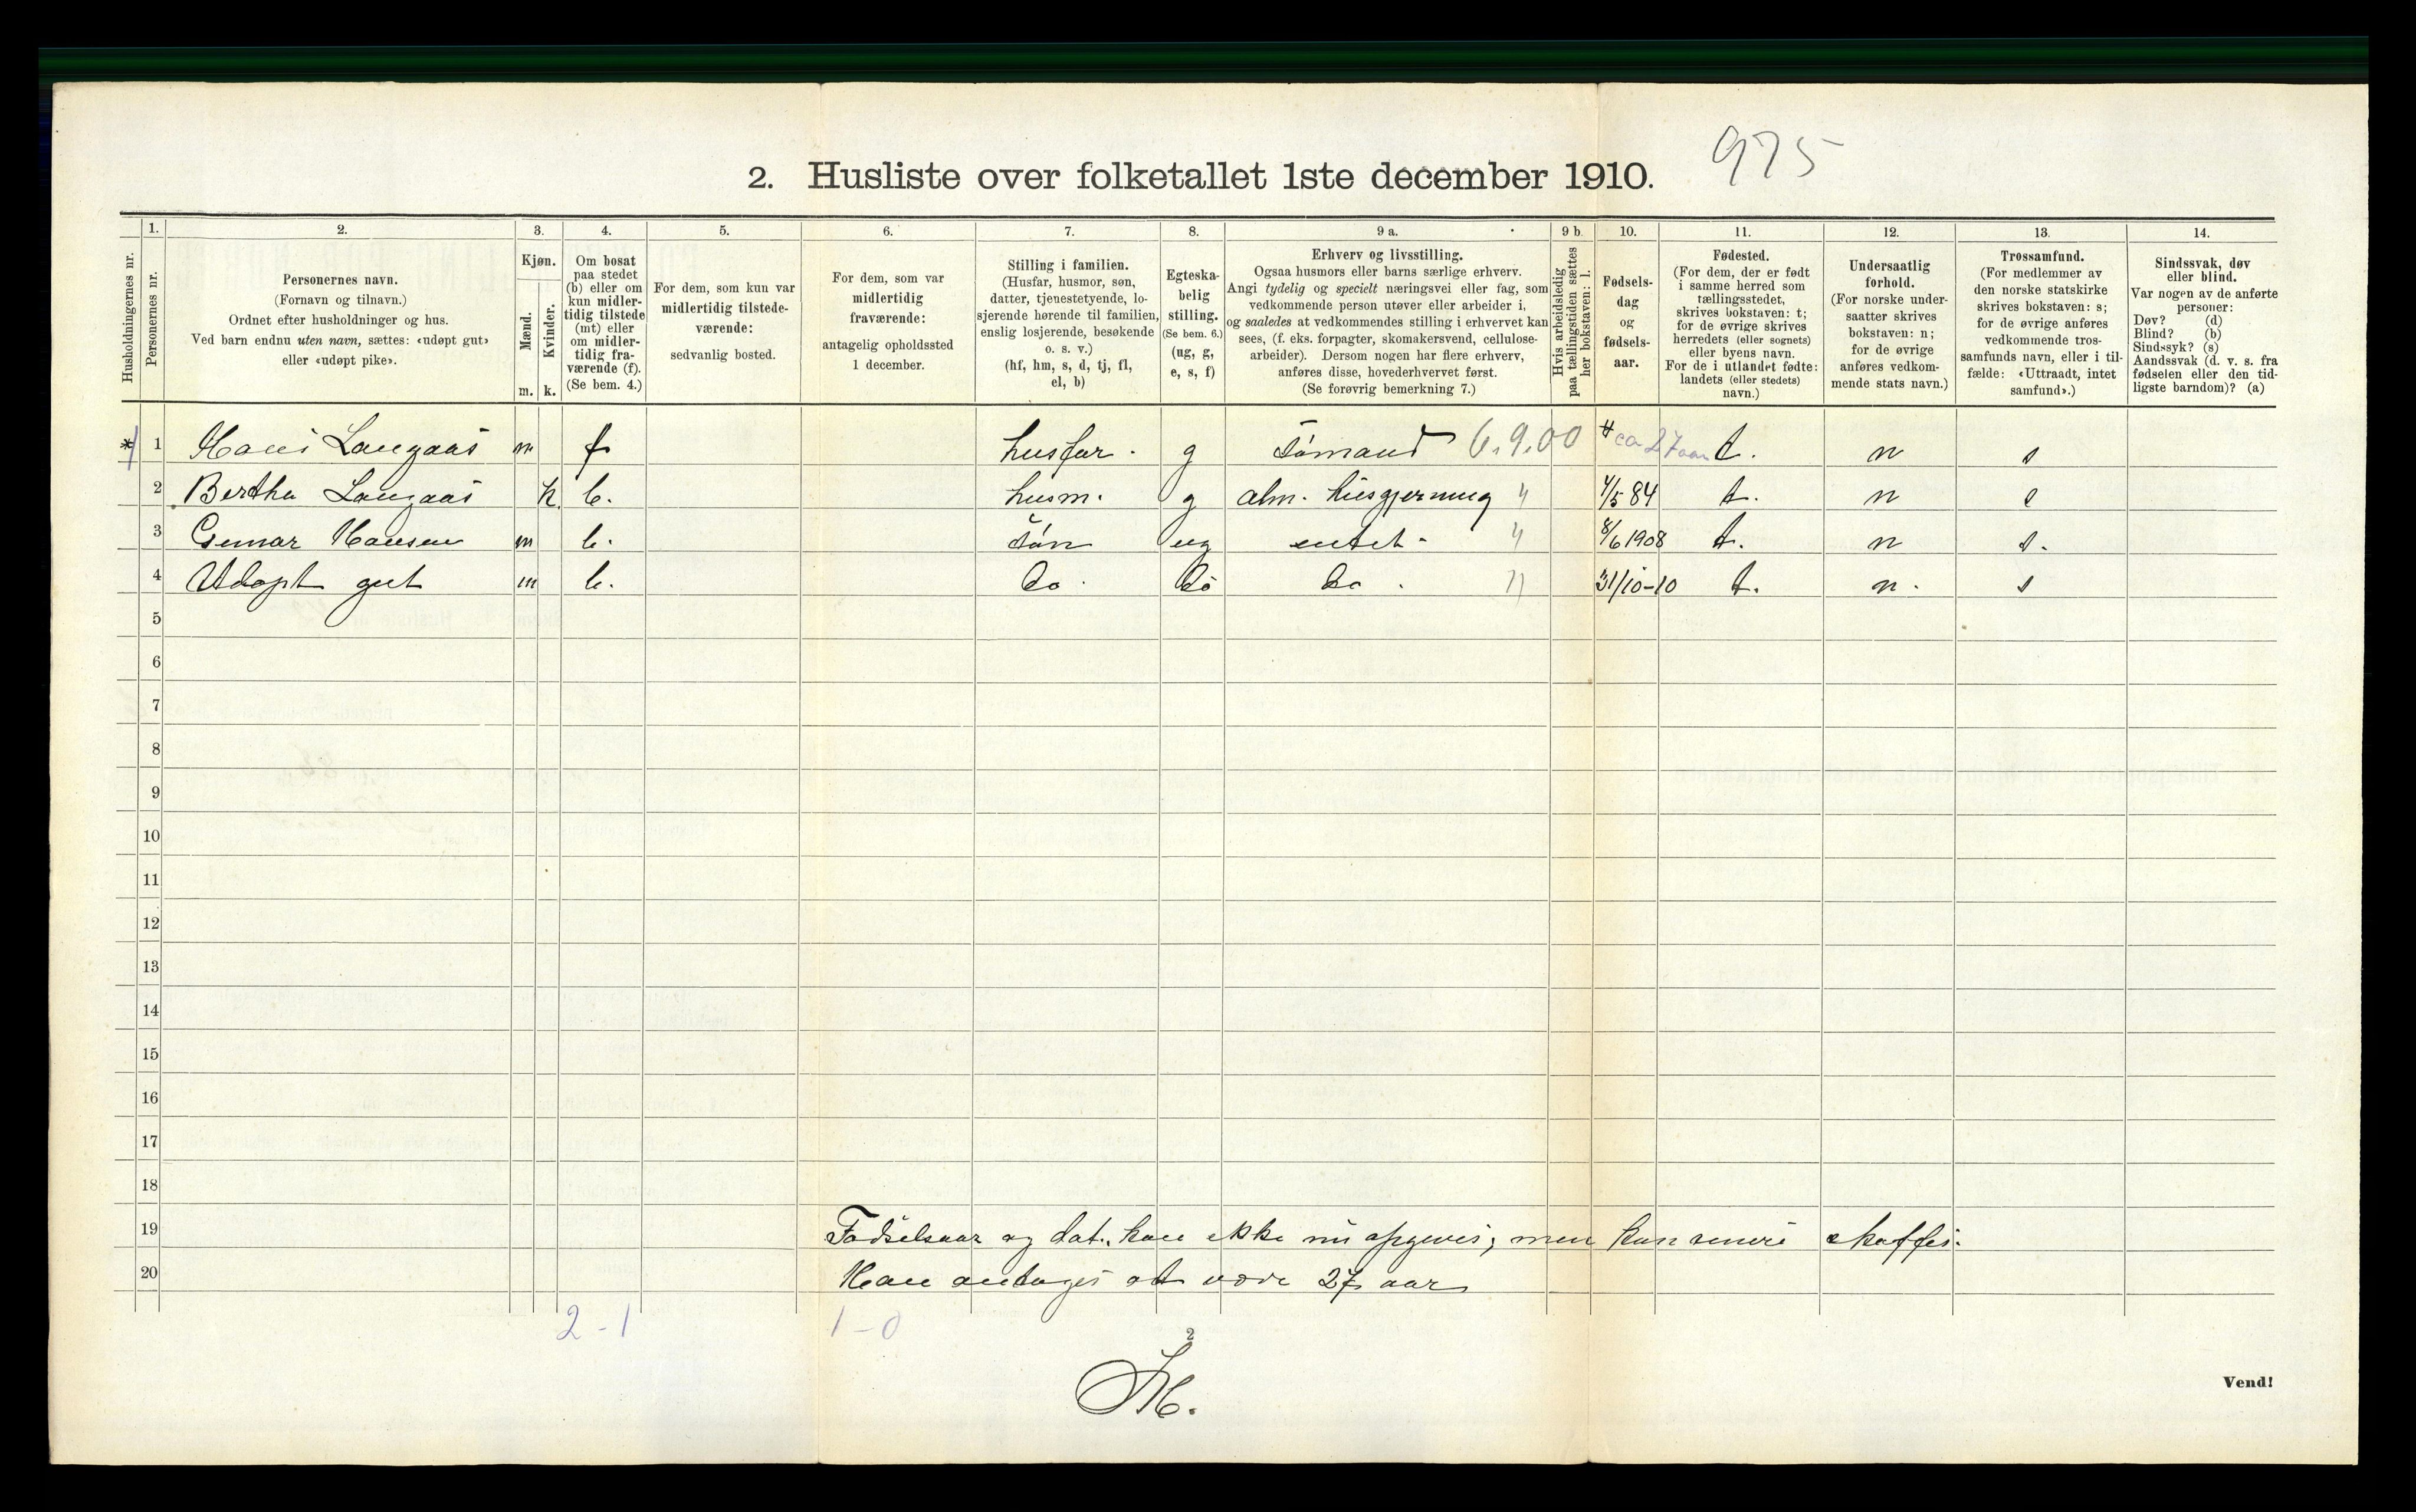 975
2. Husliste over folketallet 1ste december 1910.
Husholdningernes nr.
1.
Personernes nr.
2.
Personernes navn.
(Fornavn og tilnavn.)
Ordnet efter husholdninger og hus.
Ved barn endnu uten navn, sættes: «udøpt gut»
eller «udøpt pike».
3.
Kjøn.
Mænd.
Kvinder.
m. k.
4.
Om bosat
paa stedet
(b) eller om
kun midler-
tidig tilstede
(mt) eller
om midler-
tidig fra-
værende (f).
(Se bem. 4.)
5.
For dem, som kun var
midlertidig tilstede-
værende:
sedvanlig bosted.
6.
For dem, som var
midlertidig
fraværende:
antagelig opholdssted
1 december.
7.
Stilling i familien.
(Husfar, husmor, søn,
datter, tjenestetyende, lo-
sjerende hørende til familien,
enslig losjerende, besøkende
o. s. v.)
(hf, hm, s, d, tj, fl,
el, b)
8.
Egteska-
belig
stilling.
(Se bem. 6.)
(ug, g,
e, s, f)
9 a.
Erhverv og livsstilling.
Ogsaa husmors eller barns særlige erhverv.
Angi tydelig og specielt næringsvei eller fag, som
vedkommende person utøver eller arbeider i,
og saaledes at vedkommendes stilling i erhvervet kan
sees, (f. eks. forpagter, skomakersvend, cellulose-
arbeider). Dersom nogen har flere erhverv,
anføres disse, hovederhvervet først.
(Se forøvrig bemerkning 7.)
9 b.
Hvis arbeidsledig
paa tællingstiden sættes
her bokstaven: l.
10.
Fødsels-
dag
og
fødsels-
aar.
11.
Fødested.
(For dem, der er født
i samme herred som
tællingsstedet,
skrives bokstaven: t;
for de øvrige skrives
herredets (eller sognets)
eller byens navn.
For de i utlandet fødte:
landets (eller stedets)
navn.)
12.
Undersaatlig
forhold.
(For norske under-
saatter skrives
bokstaven: n;
for de øvrige
anføres vedkom-
mende stats navn.)
13.
Trossamfund.
(For medlemmer av
den norske statskirke
skrives bokstaven: s;
for de øvrige anføres
vedkommende tros-
samfunds navn, eller i til-
fælde: «Uttraadt, intet
samfund».)
14.
Sindssvak, døv
eller blind.
Var nogen av de anførte
personer:
Døv? (d)
Blind? (b)
Sindssyk? (s)
Aandssvak (d. v. s. fra
fødselen eller den tid-
ligste barndom)? (a)
* 1 1 Hans Langaas m f husfar. g Sömand 6.9.00 # ca 27 aar t. n s
2 Bertha Langaas k b. husm. g alm. husgjerning " 4/5 84 t. n s
3 Gunnar Hansen m b. sön ug intet " 8/6 1908 t. n s.
4 Udöpt gut m b. do. do do. " 31/10-10 t. n. s
5
6
7
8
9
10
11
12
13
14
15
16
17
18
19 Födselsaar og dat. kan ikke nu opgives; men kan senere skaffes.
20 Han antages at være 27 aar
2-1 1-0
2
Vend!